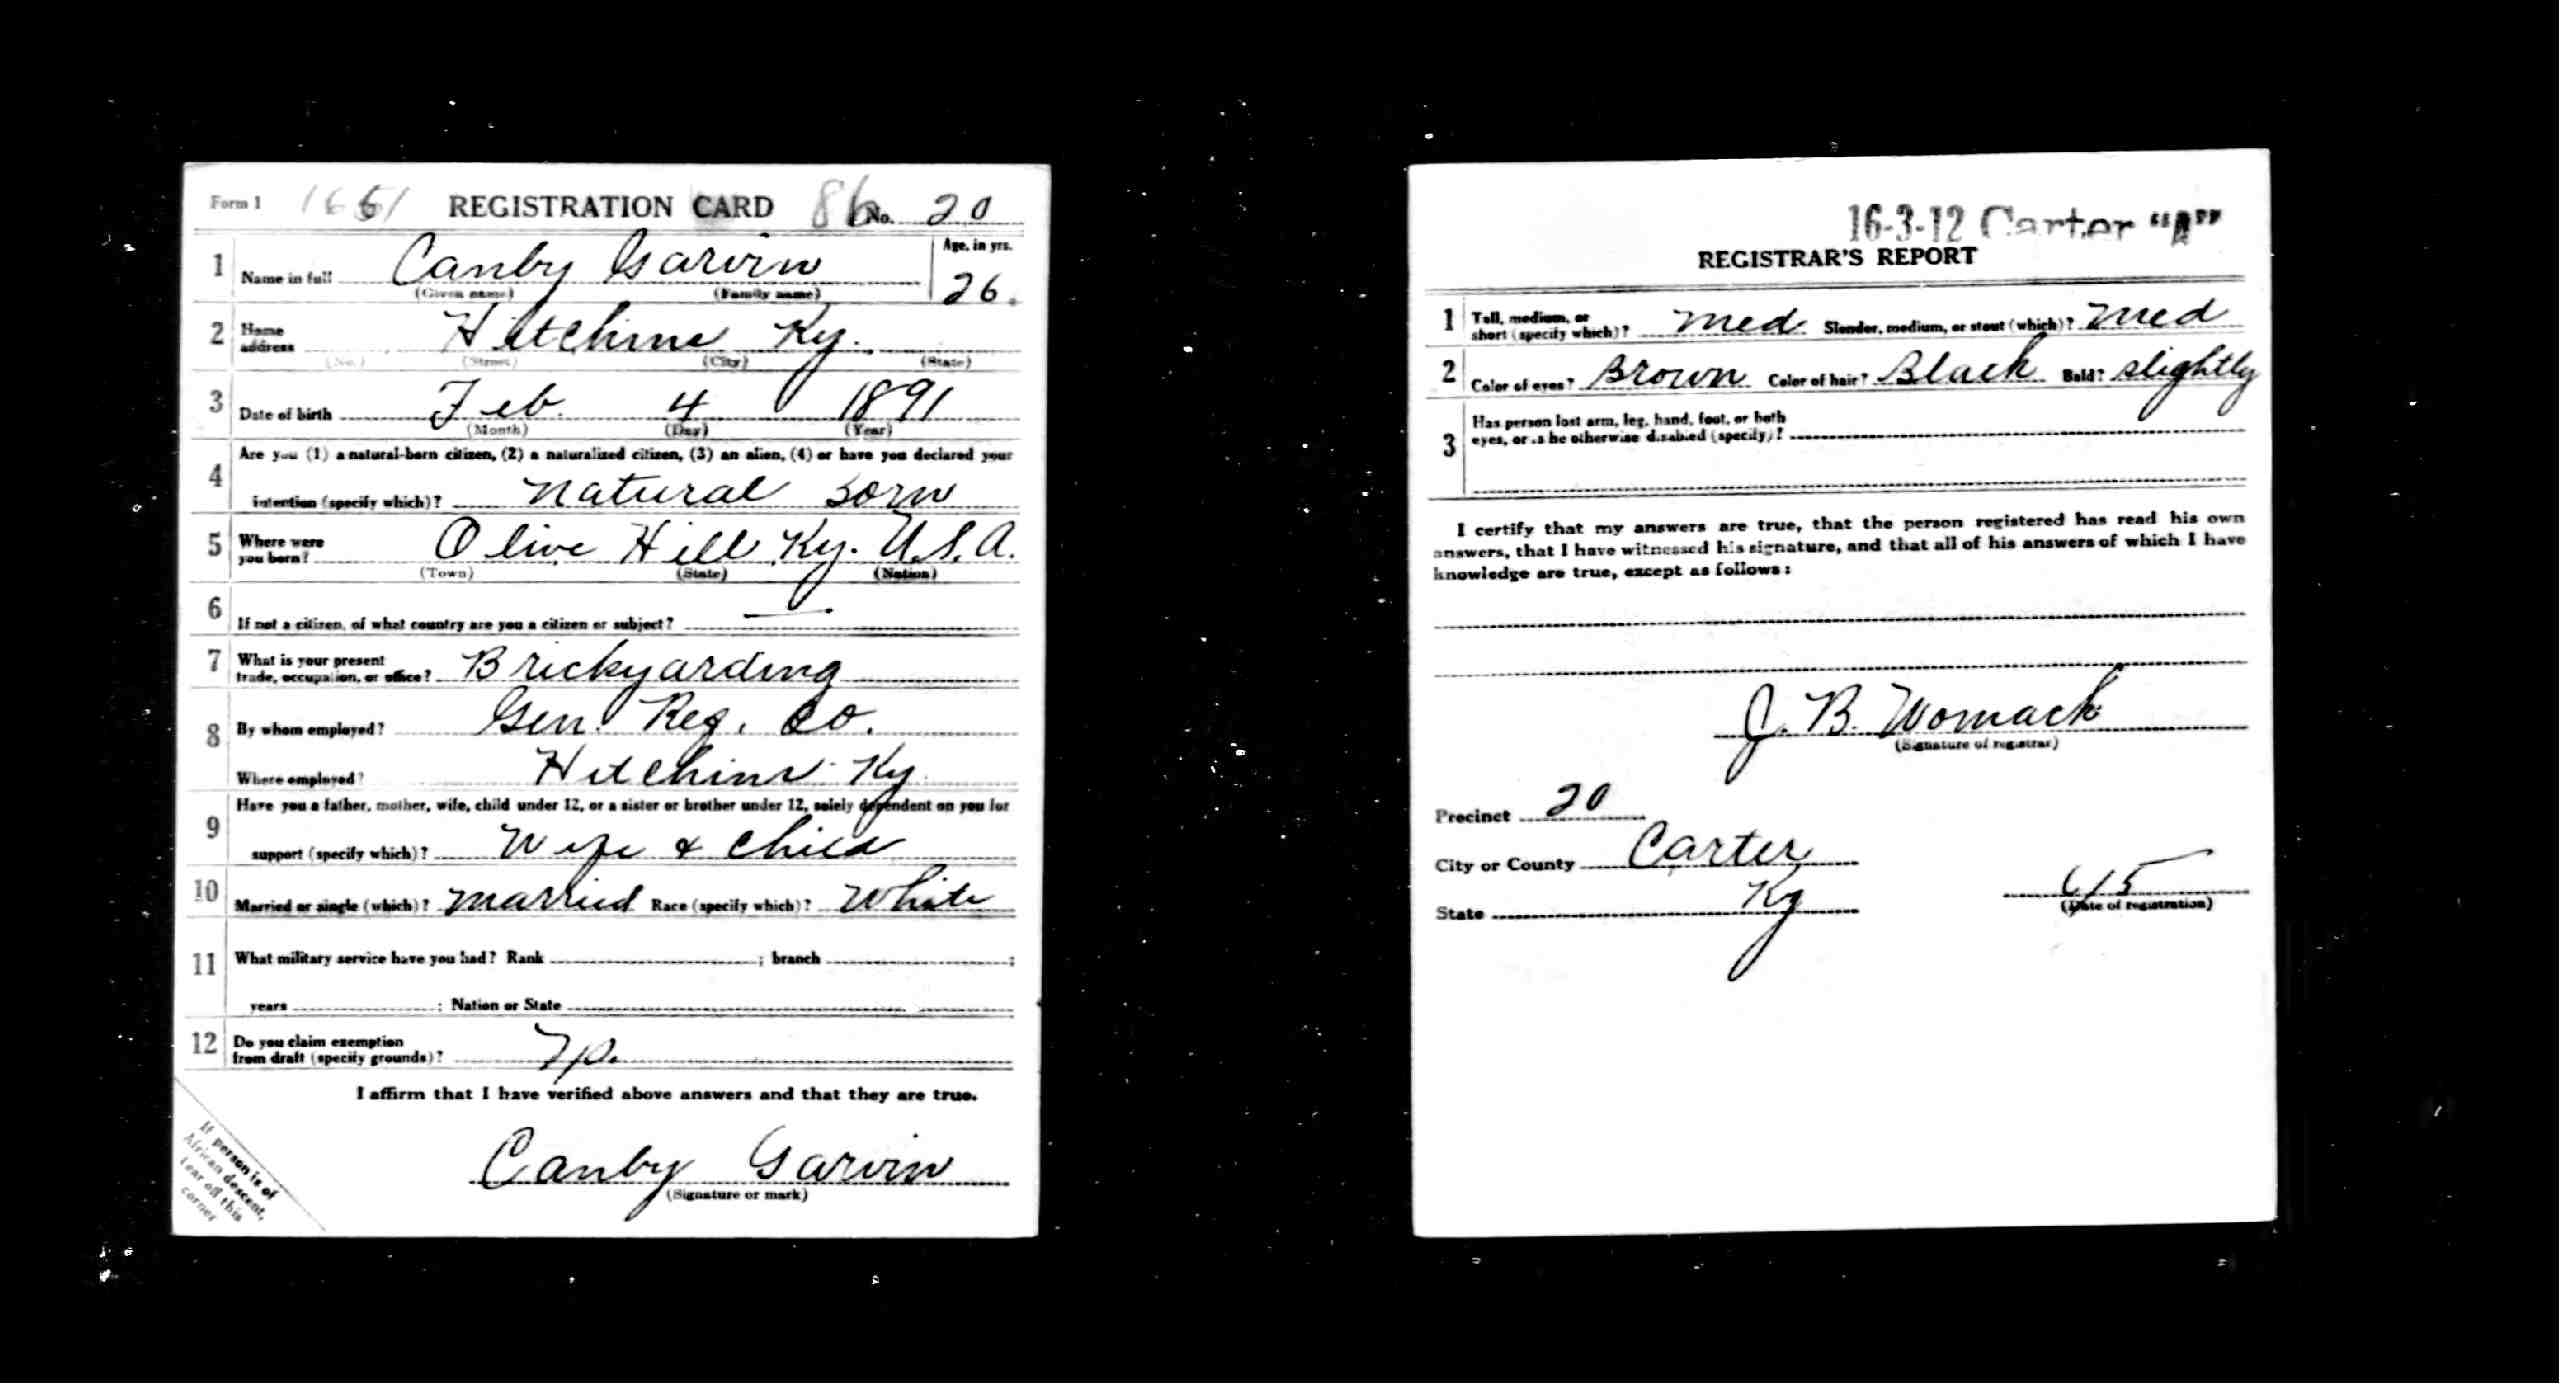 Form 1 1661 REGISTRATION CARD 86 No. 20
1 Name in full Canby Garvin Age, in yrs. 26.
(Given name) (Family name)
2 Home address Hitchins Ky.
(No.) (Street) (City) (State)
3 Date of birth Feb. 4 1891
(Month) (Day) (Year)
4 Are you (1) a natural-born citizen, (2) a naturalized citizen, (3) an alien, (4) or have you declared your
intention (specify which)? Natural Born
5 Where were you born? Olive Hill Ky. U.S.A.
(Town) (State) (Nation)
6 If not a citizen, of what country are you a citizen or subject? —
7 What is your present trade, occupation, or office? Brickyarding
8 By whom employed? Gen. Reg. Co.
Where employed? Hitchins Ky.
9 Have you a father, mother, wife, child under 12, or a sister or brother under 12, solely dependent on you for
support (specify which)? Wife & Child
10 Married or single (which)? Married Race (specify which)? White
11 What military service have you had? Rank ; branch ;
years ; Nation or State
12 Do you claim exemption from draft (specify grounds)?
I affirm that I have verified above answers and that they are true.
Canby Garvin
(Signature or mark)
If person is of
African descent,
tear off this
corner
16-3-12 Carter "A"
REGISTRAR'S REPORT
1 Tall, medium, or short (specify which)? Med. Slender, medium, or stout (which)? Med
2 Color of eyes? Brown Color of hair? Black Bald? Slightly
3 Has person lost arm, leg, hand, foot, or both
eyes, or is he otherwise disabled (specify)?
I certify that my answers are true, that the person registered has read his own
answers, that I have witnessed his signature, and that all of his answers of which I have
knowledge are true, except as follows:
J. B. Womack
(Signature of registrar)
Precinct 20
City or County Carter
State Ky
6/5
(Date of registration)